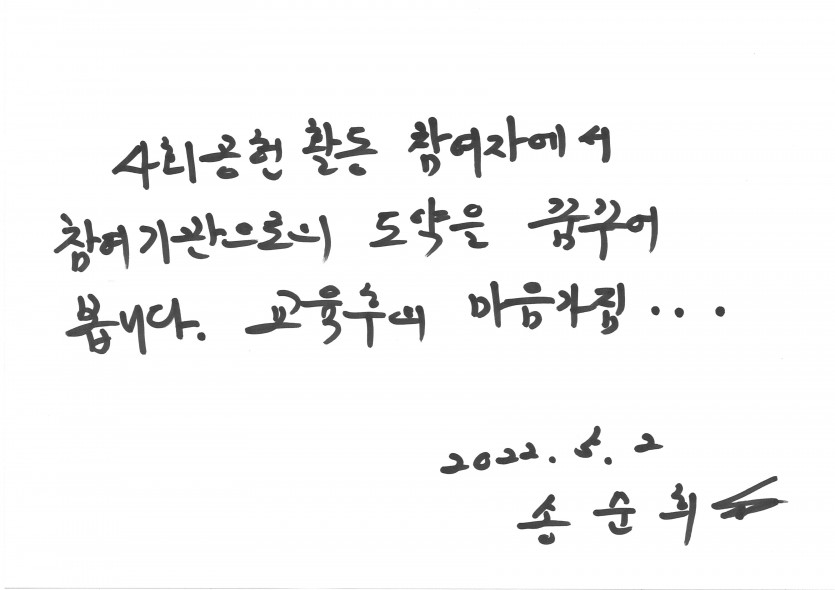 사회공헌 활동 참여자에서
참여기관으로의 도약을 꿈꾸어
봅니다. 교육후의 마음가짐...
2022. 5. 2
송순희